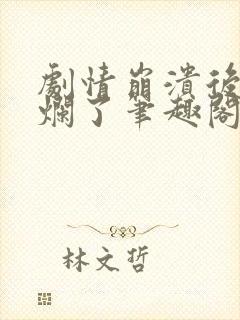 劇情崩潰後
爛了筆趣閣
林文哲